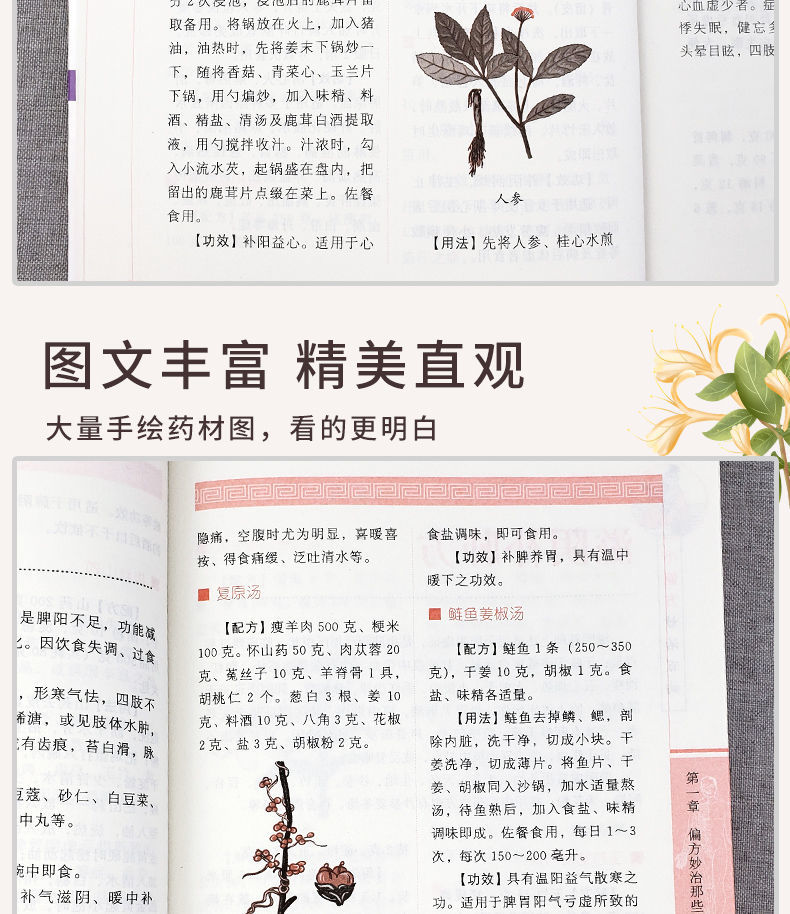 分2次浸泡，浸泡后的鹿茸片
取备用。将锅放在火上，加入猪
油，油热时，先将姜末下锅炒一
下，随将香菇、青菜心、玉兰片
下锅，用勺煸炒，加入味精、料
酒、精盐、清汤及鹿茸白酒提取
液，用勺搅拌收汁。汁浓时，勾
入小流水芡，起锅盛在盘内，把
留出的鹿茸片点缀在菜上。佐餐
食用。
【功效】补阳益心。适用于心
人参
【用法】先将人参、桂心水煎
心血虚少者。症
悸失眠，健忘多
头晕目眩，四肢
图文丰富 精美直观
大量手绘药材图，看的更明白
是脾阳不足，功能减
。因饮食失调、过食
，形寒气怯，四肢不
稀溏，或见肢体水肿，
有齿痕，苔白滑，脉
豆蔻、砂仁、白豆菜、
中丸等。
碗中即食。
补气滋阴、暖中补
隐痛，空腹时尤为明显，喜暖喜
按、得食痛缓、泛吐清水等。
复原汤
【配方】瘦羊肉 500 克、粳米
100 克。怀山药 50 克、肉苁蓉 20
克、菟丝子 10 克、羊脊骨 1 具，
胡桃仁 2 个。葱白 3 根、姜 10
克、料酒 10 克、八角 3 克、花椒
2 克、盐 3 克、胡椒粉 2 克。
食盐调味，即可食用。
【功效】补脾养胃，具有温中
暖下之功效。
鲢鱼姜椒汤
【配方】鲢鱼 1 条（250～350
克），干姜 10 克，胡椒 1 克。食
盐、味精各适量。
【用法】鲢鱼去掉鳞、鳃，剖
除内脏，洗干净，切成小块。干
姜洗净，切成薄片。将鱼片、干
姜、胡椒同入沙锅，加水适量熬
汤，待鱼熟后，加入食盐、味精
调味即成。佐餐食用，每日 1～3
次，每次 150～200 毫升。
【功效】具有温阳益气散寒之
功。适用于脾胃阳气亏虚所致的
第一章 偏方妙治那些